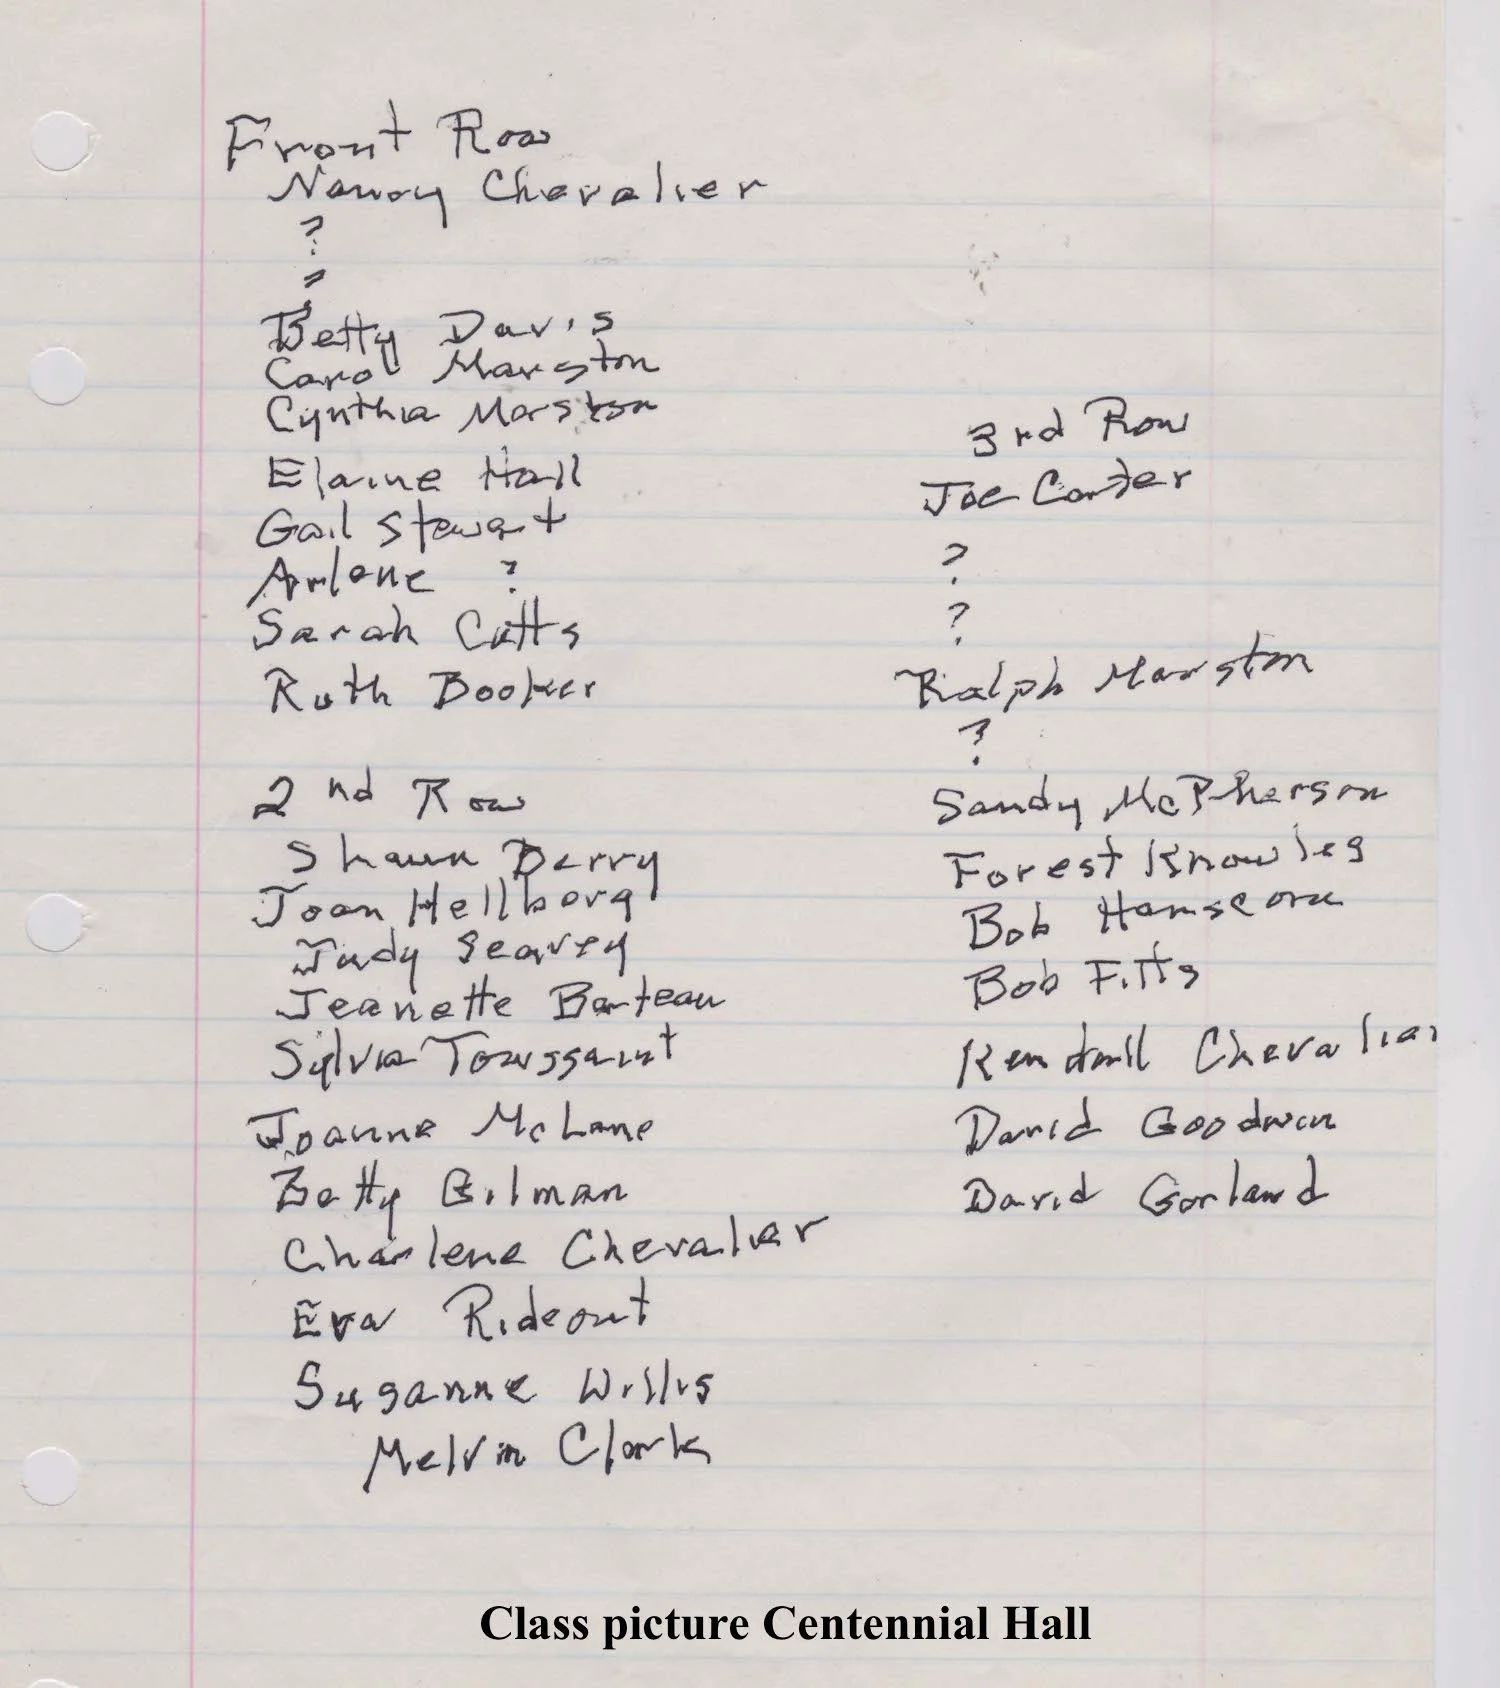 Front Row
Nancy Chevalier
?
?
Betty Davis
Carol Marston
Cynthia Marston
Elaine Hall
Gail Stewart
Arlene ?
Sarah Cutts
Ruth Booker
2nd Row
Shaun Berry
Joan Hellborg
Judy Seavey
Jeanette Barteau
Sylvia Toussaint
Joanne McLane
Betty Gilman
Charlene Chevalier
Eva Rideout
Suzanne Willis
Melvin Clark
3rd Row
Joe Carter
?
?
Ralph Marston
?
Sandy McPherson
Forest Knowles
Bob Hanscom
Bob Fitts
Kendall Chevalier
David Goodwin
David Garland
Class picture Centennial Hall